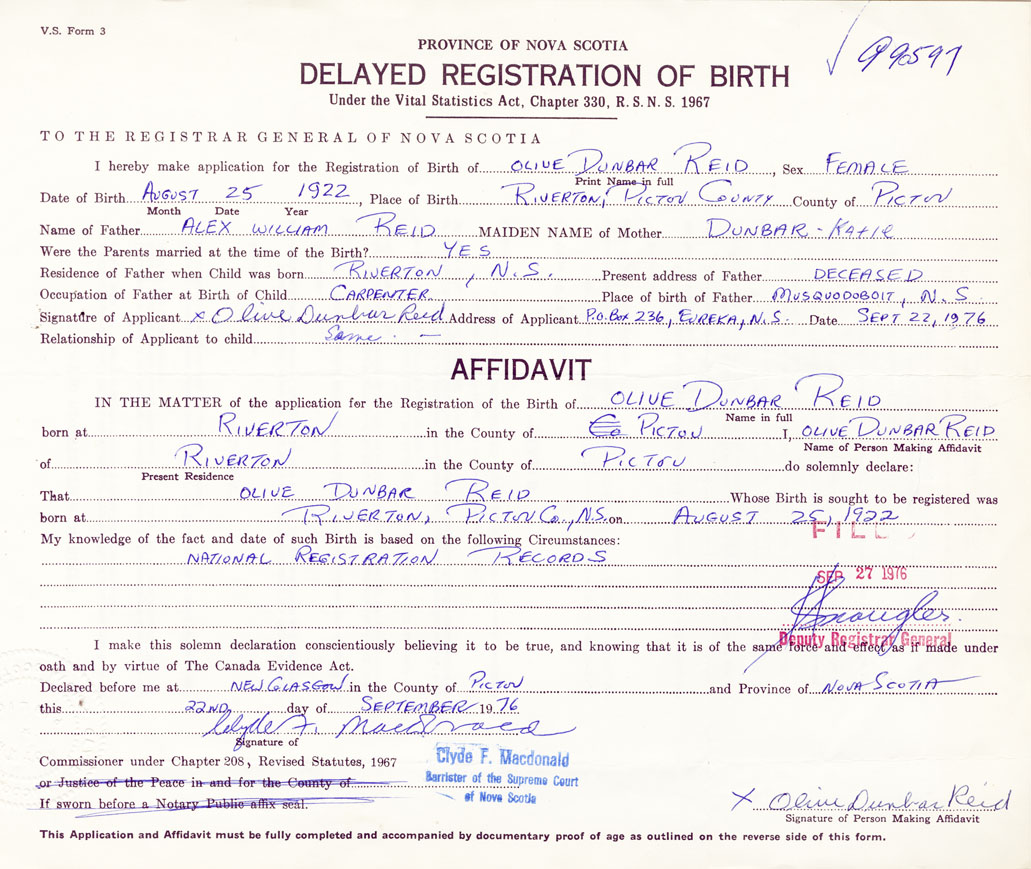 V.S. Form 3
990597
PROVINCE OF NOVA SCOTIA
DELAYED REGISTRATION OF BIRTH
Under the Vital Statistics Act, Chapter 330, R.S.N.S. 1967
TO THE REGISTRAR GENERAL OF NOVA SCOTIA
I hereby make application for the Registration of Birth of OLIVE DUNBAR REID, Sex FEMALE
Print Name in full
Date of Birth AUGUST 25 1922, Place of Birth RIVERTON, PICTOU COUNTY County of PICTOU
Month Date Year
Name of Father ALEX WILLIAM REID MAIDEN NAME of Mother DUNBAR - KATIE
Were the Parents married at the time of the Birth? YES
Residence of Father when Child was born RIVERTON, N.S. Present address of Father DECEASED
Occupation of Father at Birth of Child CARPENTER Place of birth of Father MUSQUODOBOIT, N.S.
Signature of Applicant x Olive Dunbar Reid Address of Applicant P.O. BOX 236, EUREKA, N.S. Date SEPT 22, 1976
Relationship of Applicant to child Same. -
AFFIDAVIT
IN THE MATTER of the application for the Registration of the Birth of OLIVE DUNBAR REID
Name in full
born at RIVERTON in the County of Co PICTOU I, OLIVE DUNBAR REID
Name of Person Making Affidavit
of RIVERTON in the County of PICTOU do solemnly declare:
Present Residence
That OLIVE DUNBAR REID Whose Birth is sought to be registered was
born at RIVERTON, PICTOU CO., N.S. on AUGUST 25, 1922
My knowledge of the fact and date of such Birth is based on the following Circumstances:
NATIONAL REGISTRATION RECORDS
SEP 27 1976
Deputy Registrar General
I make this solemn declaration conscientiously believing it to be true, and knowing that it is of the same force and effect as if made under
oath and by virtue of The Canada Evidence Act.
Declared before me at NEW GLASGOW in the County of PICTOU and Province of NOVA SCOTIA
this 22ND day of SEPTEMBER 1976
Clyde F. MacDonald
Signature of
Commissioner under Chapter 208, Revised Statutes, 1967
or Justice of the Peace in and for the County of
If sworn before a Notary Public affix seal.
Clyde F. Macdonald
Barrister of the Supreme Court
of Nova Scotia
x Olive Dunbar Reid
Signature of Person Making Affidavit
This Application and Affidavit must be fully completed and accompanied by documentary proof of age as outlined on the reverse side of this form.